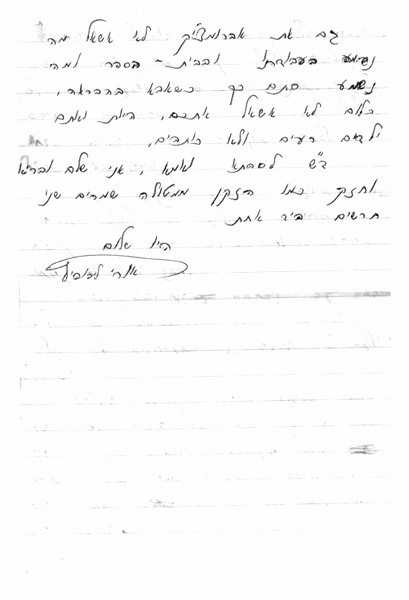 גם את אברומצ'יק לא אשאל מה
נשמע בעבודתו ובבית-הספר ומה
נשמע סתם כך כשאבא בהבראה,
כלום לא אשאל אתכם, היות ואתם
ילדים רעים ולא כותבים,
ד"ש לסבתא ואמא, אני שלם ובריא
וחזק כמו הזקן ממטולה שמרים שני
תרשים ביד אחת
היו שלום